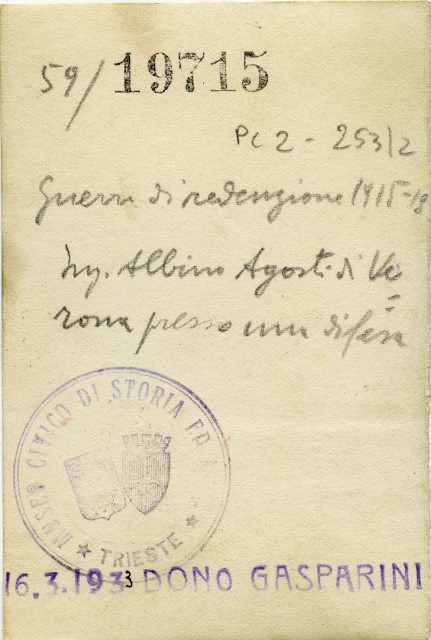 59/19715
Pc 2 - 253/2
Guerra di redenzione 1915-18
Ing. Albino Agosti di Ve=
rona presso una difesa
MUSEO CIVICO DI STORIA ED A
TRIESTE
16.3.1933 DONO GASPARINI